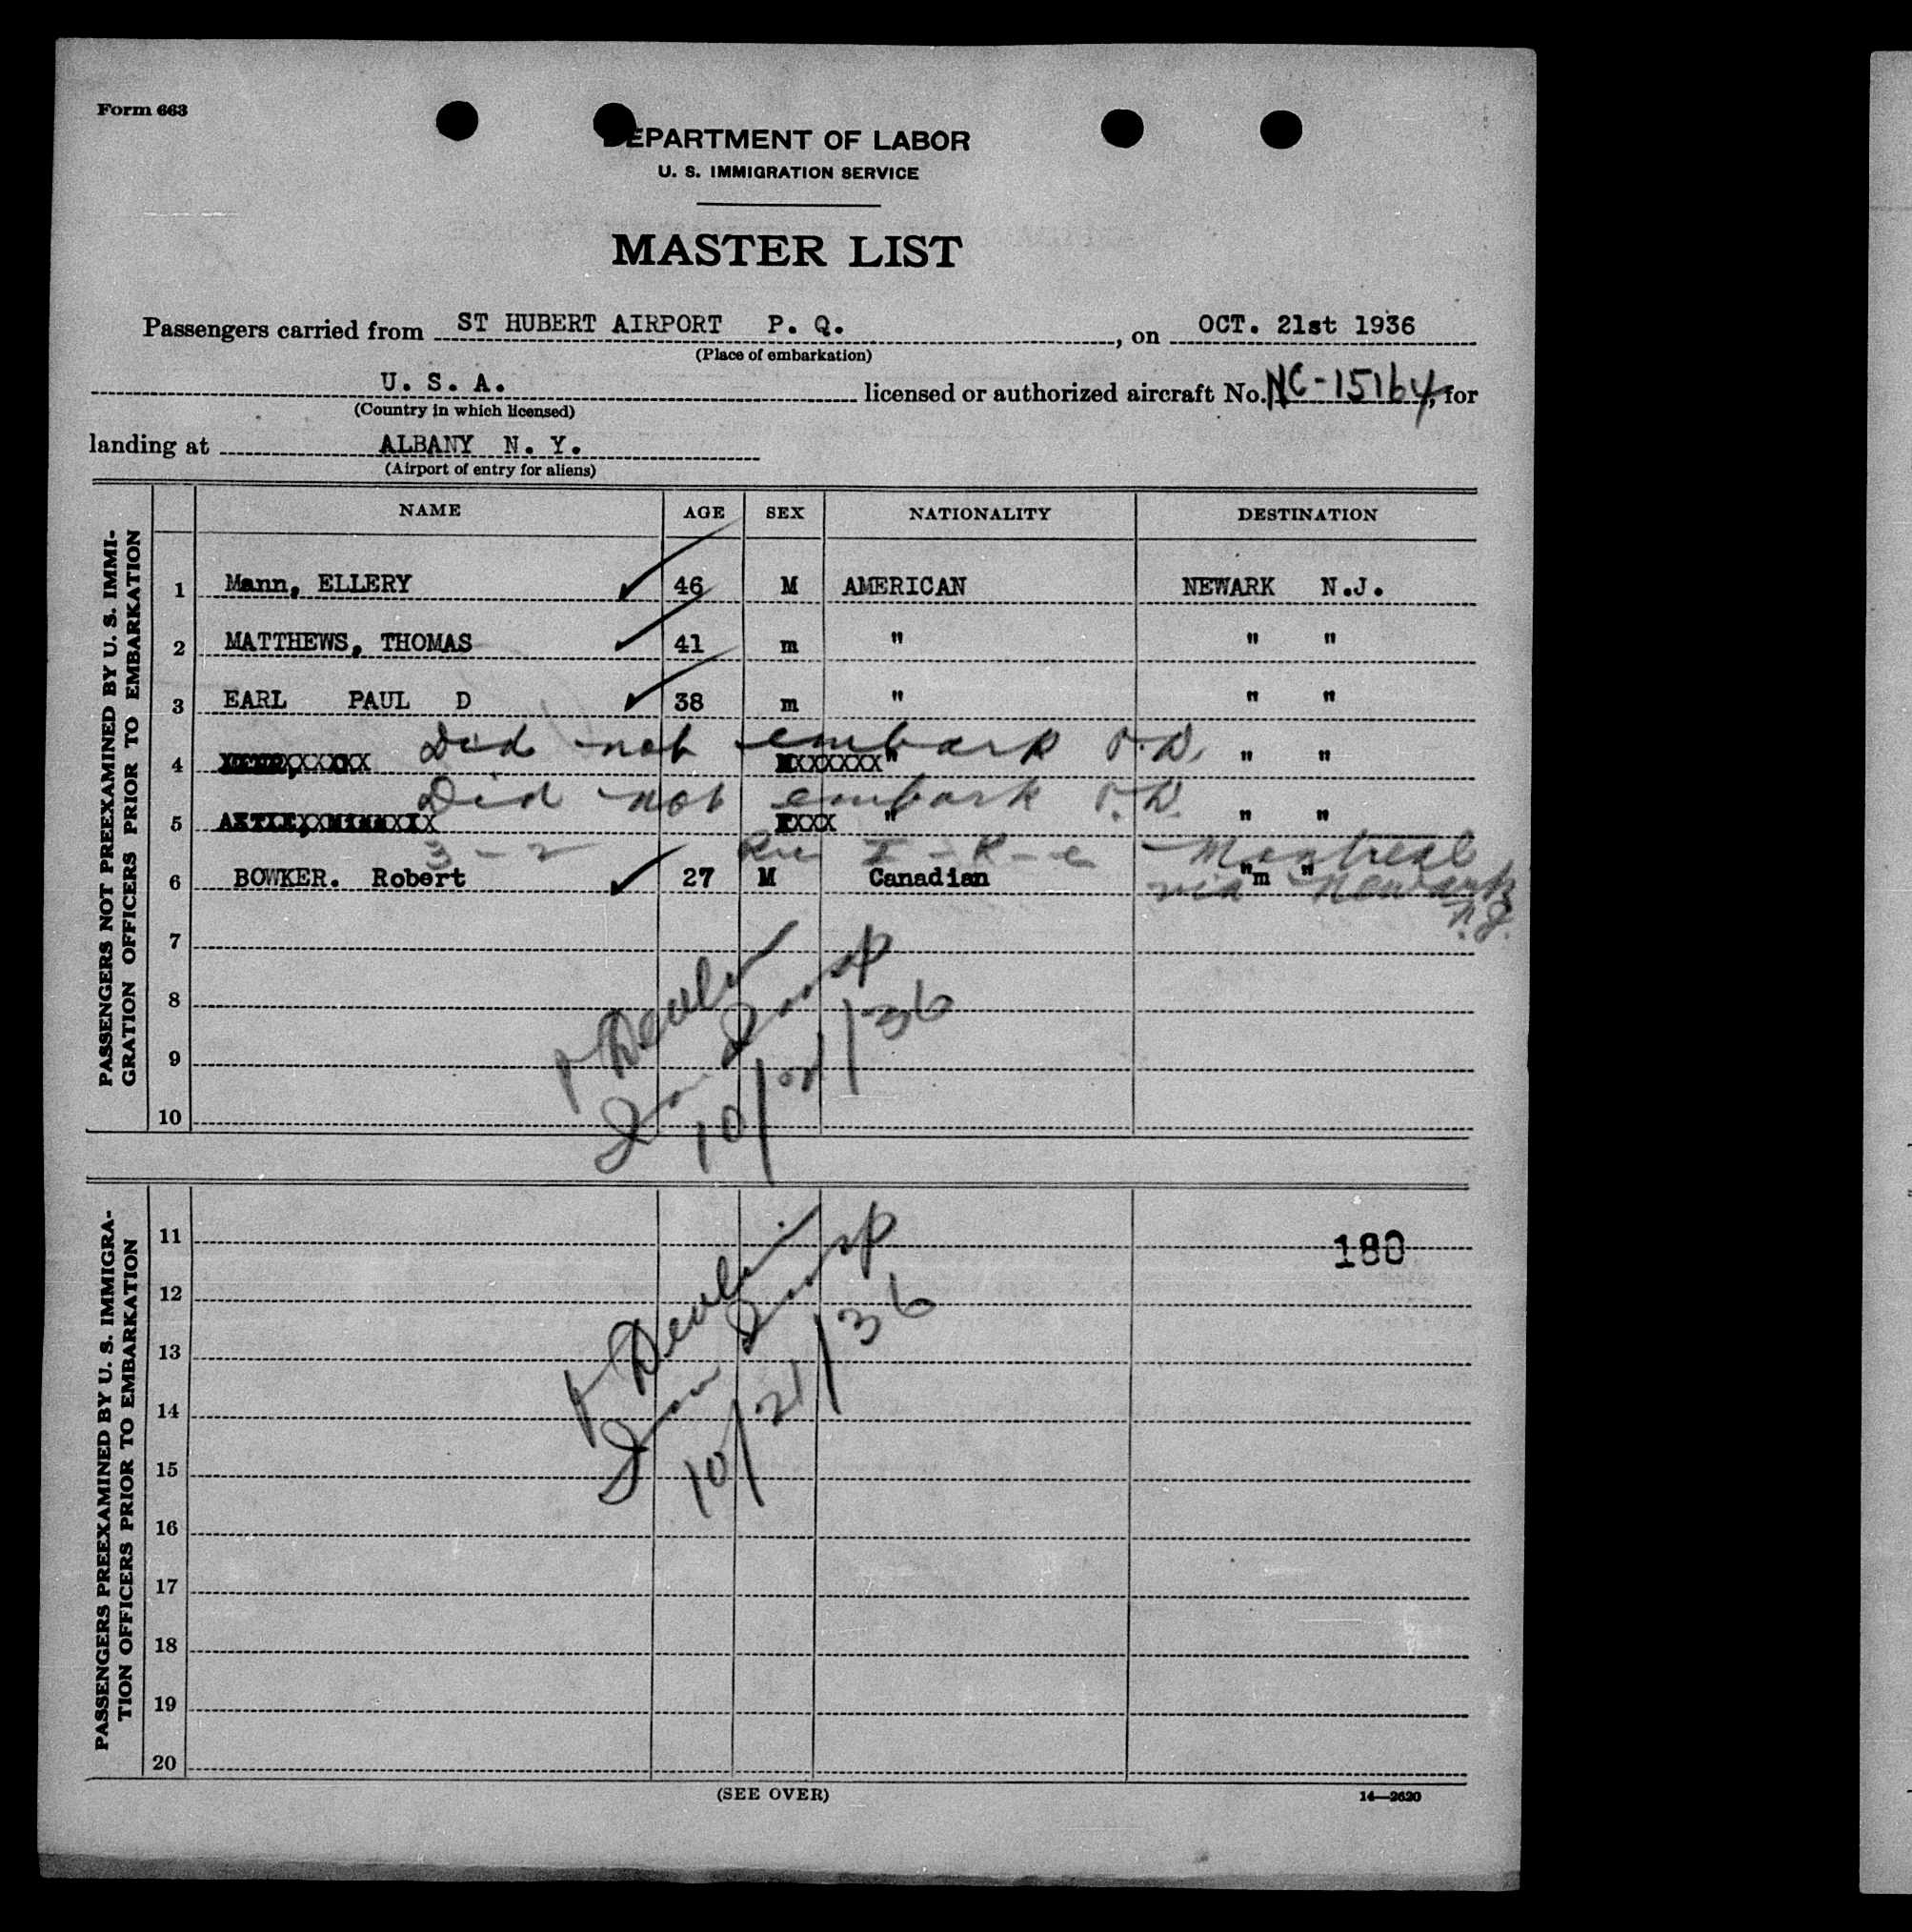 Form 663
DEPARTMENT OF LABOR
U. S. IMMIGRATION SERVICE
MASTER LIST
Passengers carried from ST HUBERT AIRPORT P. Q. , on OCT. 21st 1936
(Place of embarkation)
U. S. A. licensed or authorized aircraft No. NC-15164, for
(Country in which licensed)
landing at ALBANY N. Y.
(Airport of entry for aliens)
PASSENGERS NOT PREEXAMINED BY U. S. IMMI-
GRATION OFFICERS PRIOR TO EMBARKATION
NAME AGE SEX NATIONALITY DESTINATION
1 Mann, ELLERY 46 M AMERICAN NEWARK N.J.
2 MATTHEWS, THOMAS 41 m " " "
3 EARL PAUL D 38 m " " "
Did not embark P.D.
4 " " "
Did not embark P.D.
5 " " "
3-2 Montreal
6 BOWKER. Robert 27 M Canadian "m "
via Newark
N.J.
7
8
9
10
P Devlin
Imm Insp
10/21/36
PASSENGERS PREEXAMINED BY U. S. IMMIGRA-
TION OFFICERS PRIOR TO EMBARKATION
11
180
12
13
14
15
16
17
18
19
20
P Devlin
Imm Insp
10/21/36
(SEE OVER)
14—2620